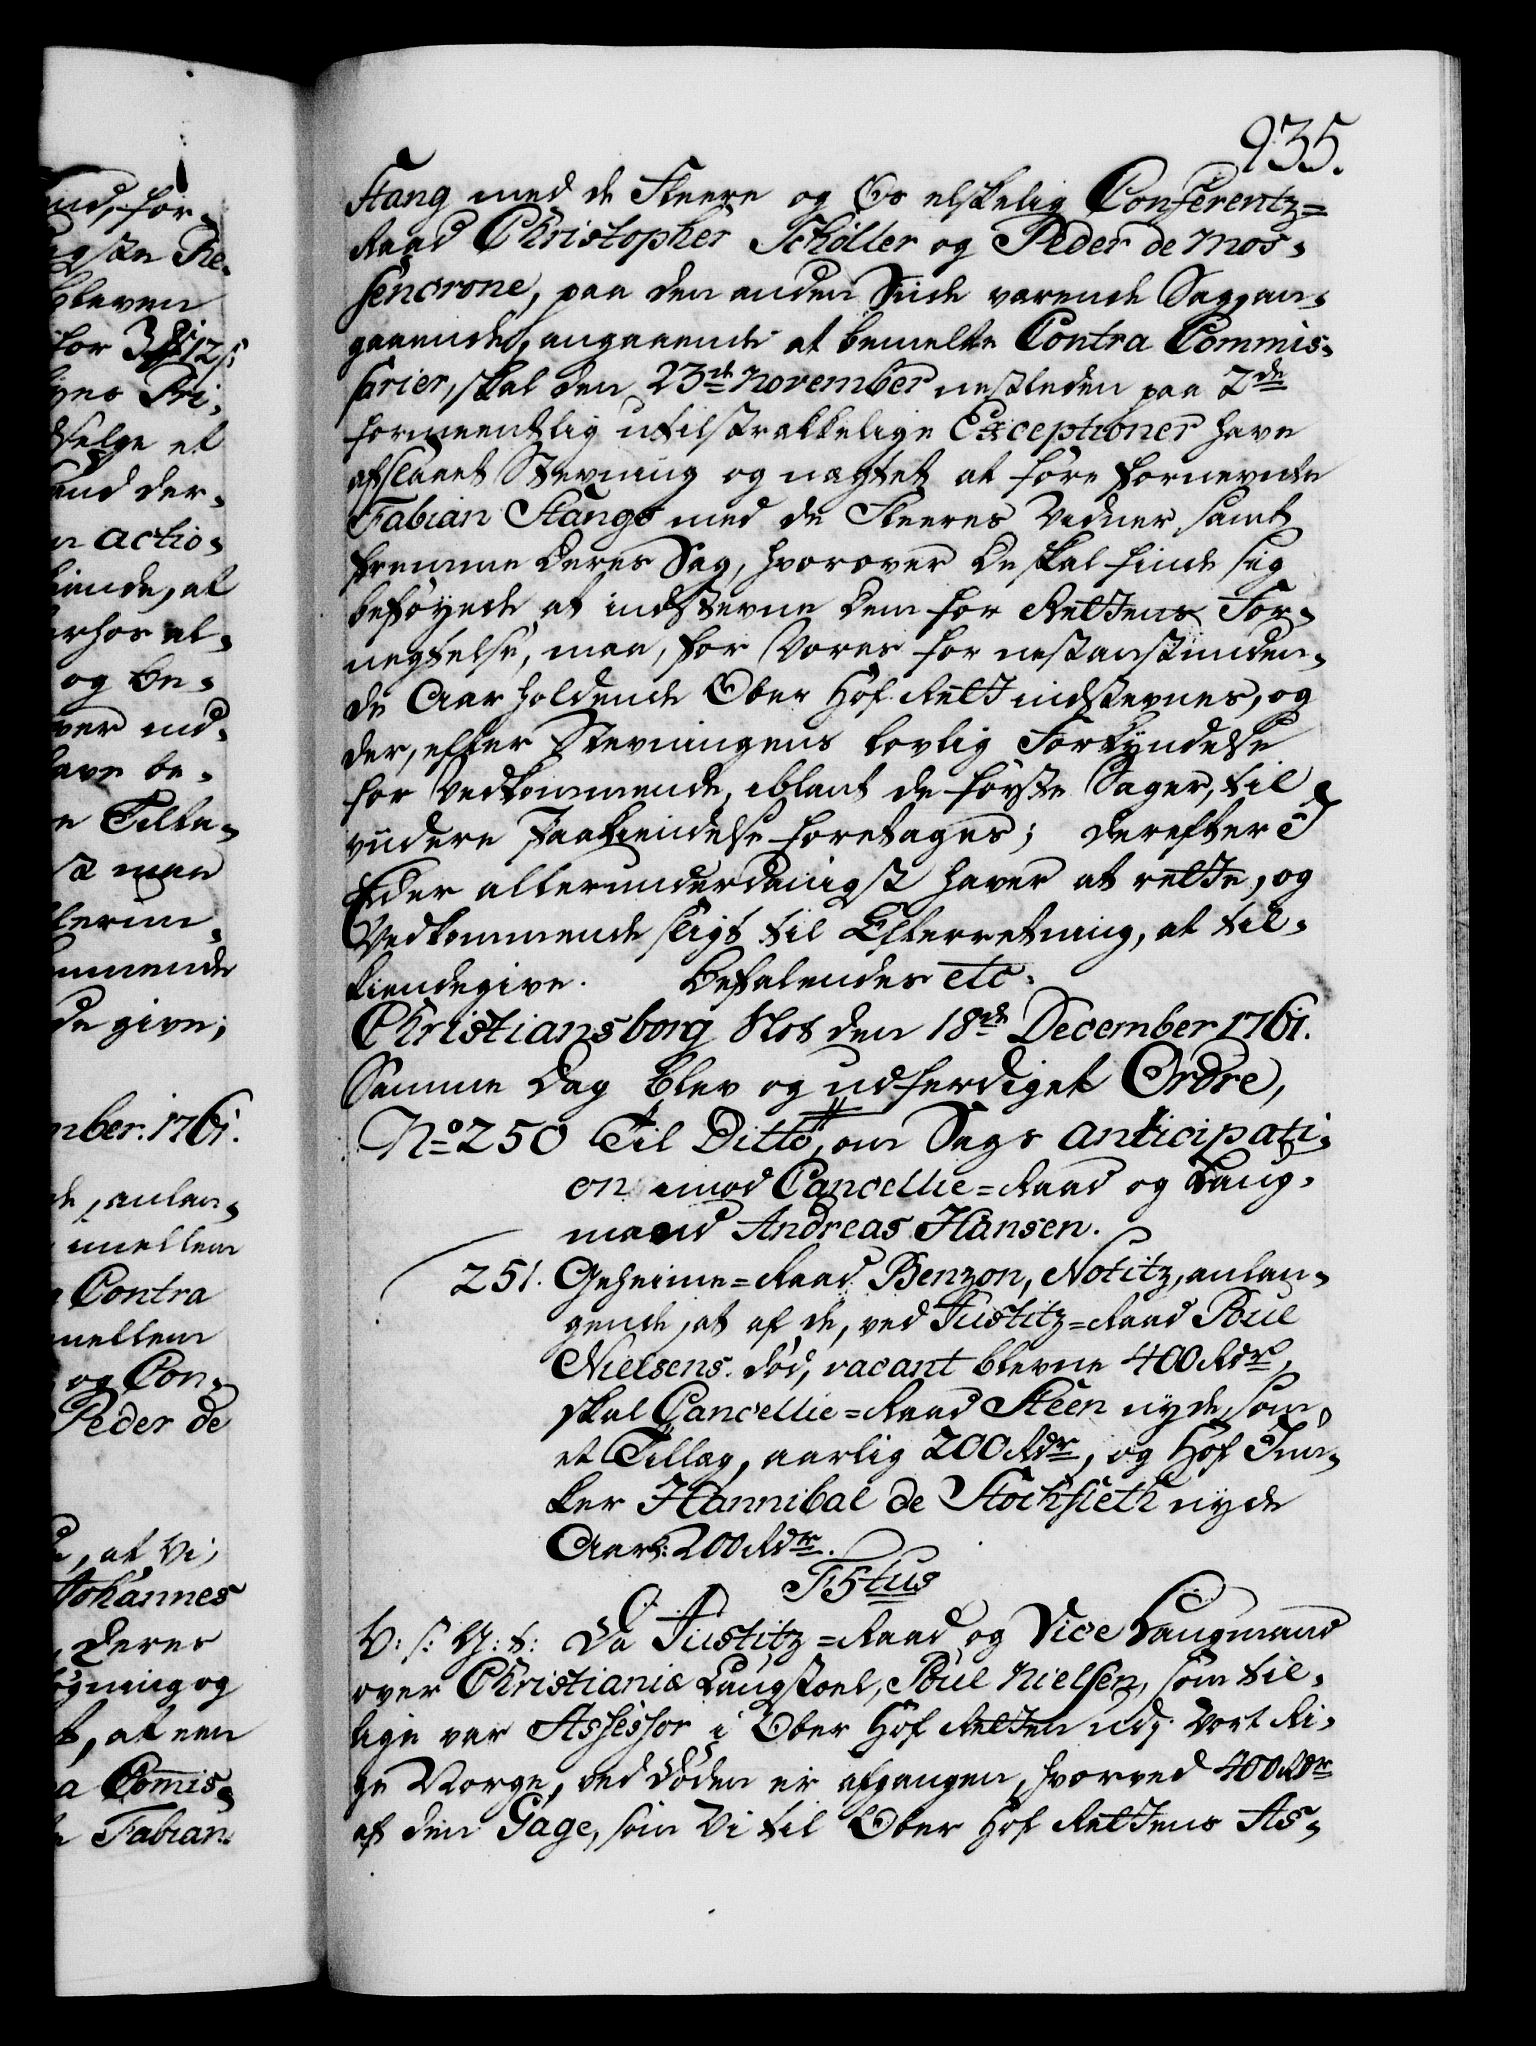 935.
Stang med de Fleere og Os elskelig Conferentz=
Raad Christopher Schøller og Peder de Mos-
sencrone, paa den anden Siide værende Sag, an-
gaaende, angaaende at bemelte Contra Commis-
sarier, skal den 23de November nestleden paa 2de
formeentlig utilstrækkelige Exceptioner have
afslaaet Stevning og nægtet at føre fornevnte
Fabian Stangs med de Fleeres Vidner, samt
fremme deres Sag, hvorover de skal finde sig
beføyede at indstevne dem for Rettens For-
negtelse, maa, for Vores for nestanstunden-
de Aar holdende Ober Hof Rett indstevnes, og
der, efter Stevningens lovlig Forkyndelse
for Vedkommende, iblant de første Sager, til
viidere Paakiendelse foretages; derefter I
Eder allerunderdanigst haver at rette, og
Vedkommende sligt til Efterretning, at til-
kiendegive. Befalendes etc.
Christiansborg Slot den 18de December 1761.
Samme Dag blev og udferdiget Ordre,
No 250 Til Ditto, om Sags anticipati-
on imod Cancellie=Raad og Laug-
mand Andreas Hansen.
251. Geheime=Raad Benzon, Notitz, anlan-
gende, at af de, ved Justitz=Raad Poul
Nielsens død, vacant blevne 400 Rdr,
skal Cancellie=Raad Steen nyde, som
et Tillæg, aarlig 200 Rdr, og Hof Jun-
ker Hannibal de Stochfleth nyde
Aarl: 200 Rdr.
V: s: G: t: Da Justitz=Raad og Vice Laugmand
over Christiania Laugstoel, Poul Nielsen, som til-
lige var Assessor i Ober Hof Retten udj Vort Ri-
ge Norge, ved døden er afgangen, hvorved 400 Rdr
af den Gage, som Vi til Ober Hof Rettens As-